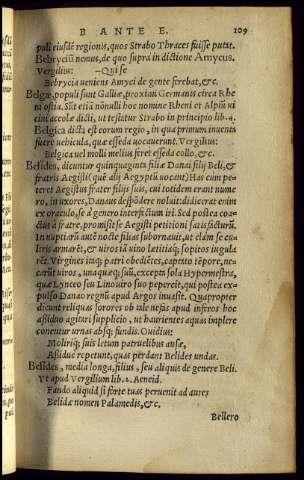 B ANTE E. 109
puli eiusdē regionis, quos Strabo Thraces fuisse putat.
Bebrycium nemus, de quo supra in dictione Amycus.
Vergilius: —Qui se
Bebrycia ueniens Amyci de gente ferebat, &c.
Belgæ, populi sunt Galliæ, proximi Germanis circa Rhe
ni ostia. Sūt etiā nōnulli hoc nomine Rheni et Alpiū ui
cini accolæ dicti, ut testatur Strabo in principio lib. 4.
Belgica dicta est eorum regio, in qua primum inuenta
fuere uehicula, quæ esseda uocauerunt. Vergilius:
Belgica uel molli melius feret esseda collo, &c.
Belides, dicuntur quinquaginta filiæ Danai filij Beli, &
fratris Aegisti (quē alij Aegyptū uocant) Has cum pe-
teret Aegistus frater filijs suis, cui totidem erant nume
ro, in uxores, Danaus despōdere noluit: didicerat enim
ex oraculo, se à genero interfectum iri. Sed postea coa-
ctus à fratre, promisit se Aegisti petitioni satisfacturū.
In nuptiarū autē nocte filias subornauit, ut clam se cul-
tris armarēt, & uiros iā uino lætitiaq; sopitos iugula
rēt. Virgines itaq; patri obedietes, capto tēpore, ne-
carūt uiros, unaquæq; suū, excepta sola Hypermestra,
quæ Lynceo seu Lino uiro suo pepercit, qui postea ex-
pulso Danao regnū apud Argos inuasit. Quapropter
dicunt reliquas sorores ob tale nefas apud inferos hoc
assiduo agitari supplicio, ut haurientes aquas implere
conentur urnas absq; fundis. Ouidius:
Moliriq; suis letum patruelibus ausæ,
Assiduæ repetunt, quas perdant Belides undas.
Belides, media longa, filius, seu aliquis de genere Beli.
Vt apud Vergilium lib. 2. Aeneid.
Fando aliquid si forte tuas peruenit ad aures
Belidæ nomen Palamedis, &c.
Bellero